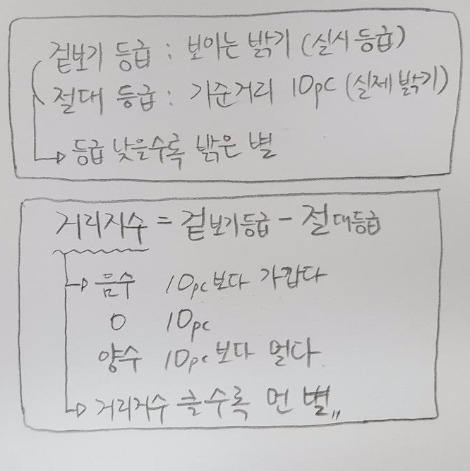 겉보기 등급 : 보이는 밝기 (실시등급)
절대 등급 : 기준거리 10pc (실제 밝기)
→ 등급 낮을수록 밝은 별
거리지수 = 겉보기등급 - 절대등급
→ 음수 10pc보다 가깝다
0 10pc
양수 10pc보다 멀다
→ 거리지수 클수록 먼 별